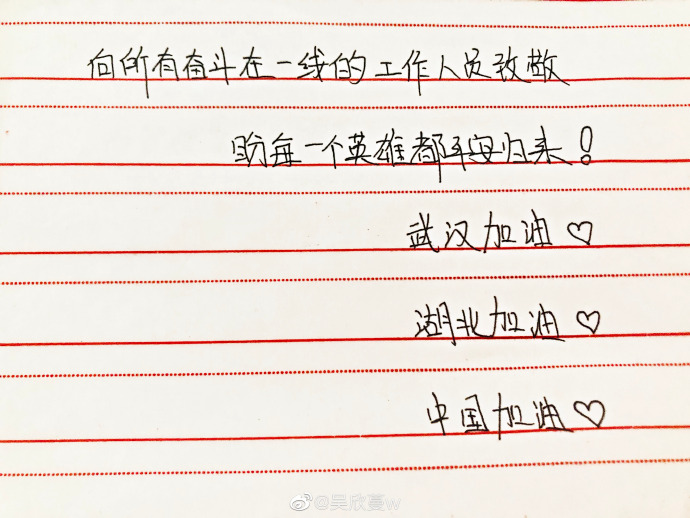 向所有奋斗在一线的工作人员致敬
盼每一个英雄都平安归来！
武汉加油♡
湖北加油♡
中国加油♡
@吴欣蔓w